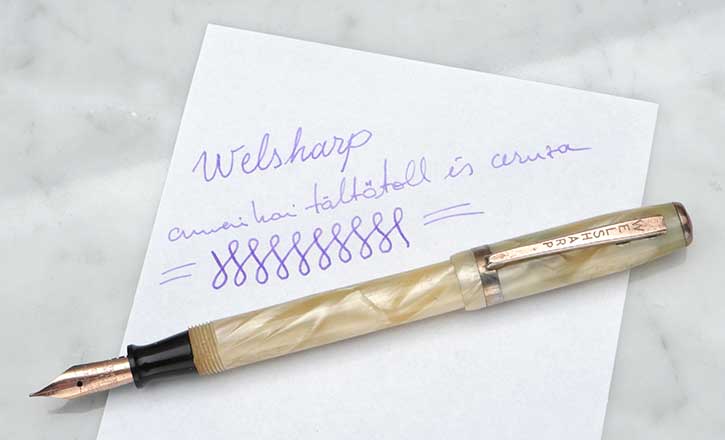 Welsharp
amerikai töltőtoll és ceruza
WELSHARP